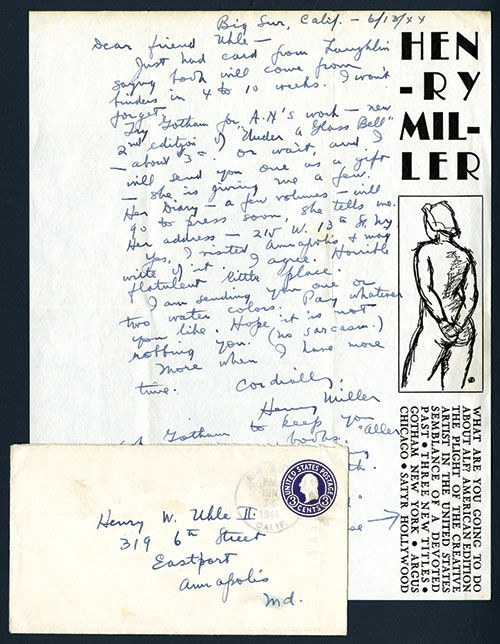 Big Sur, Calif. - 6/13/44
Dear friend Uhle -
Just had card from Laughlin
saying book will come from
binders in 4 to 10 weeks. I won't
forget.
Try Gotham for A.N's work - new
2nd edition of "Under a Glass Bell"
- about 3.00 or wait, and I
will send you one as a gift
- she is giving me a few.
Her Diary - a few volumes - will
go to press soon, she tells me.
Her address - 215 W. 13th St, NY
Yes, I visited Annapolis & may
write of it. I agree. Horrible
flatulent little place.
I am sending you one or
two water colors. Pay whatever
you like. Hope it is not
robbing you. (no sarcasm.)
More when I have more
time.
Cordially,
Henry Miller
Gotham to keep you
books. "Aller
HEN
-RY
MIL-
LER
WHAT ARE YOU GOING TO DO
ABOUT ALF? AMERICAN EDITION
THE PLIGHT OF THE CREATIVE
ARTIST IN THE UNITED STATES
SEMBLANCE OF A DEVOTED
PAST • THREE NEW TITLES •
GOTHAM NEW YORK • ARGUS
CHICAGO • SATYR HOLLYWOOD
BIG SUR
PM
JUN
1944
CALIF.
UNITED STATES POSTAGE
3 CENTS 3
Henry W. Uhle II.
319 6th Street
Eastport
Annapolis
Md.